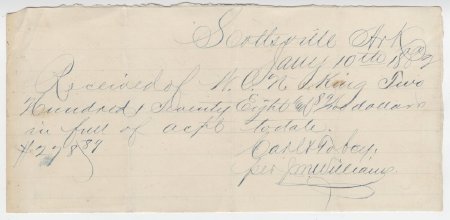 Scottsville Ark
Jany 10th 188
Received of W. G. N. King Two
Hundred & Seventy Eight & 89/100 dollars
in full of acpt to date.
$278 89
Carl & Tobey.
per J M Williams